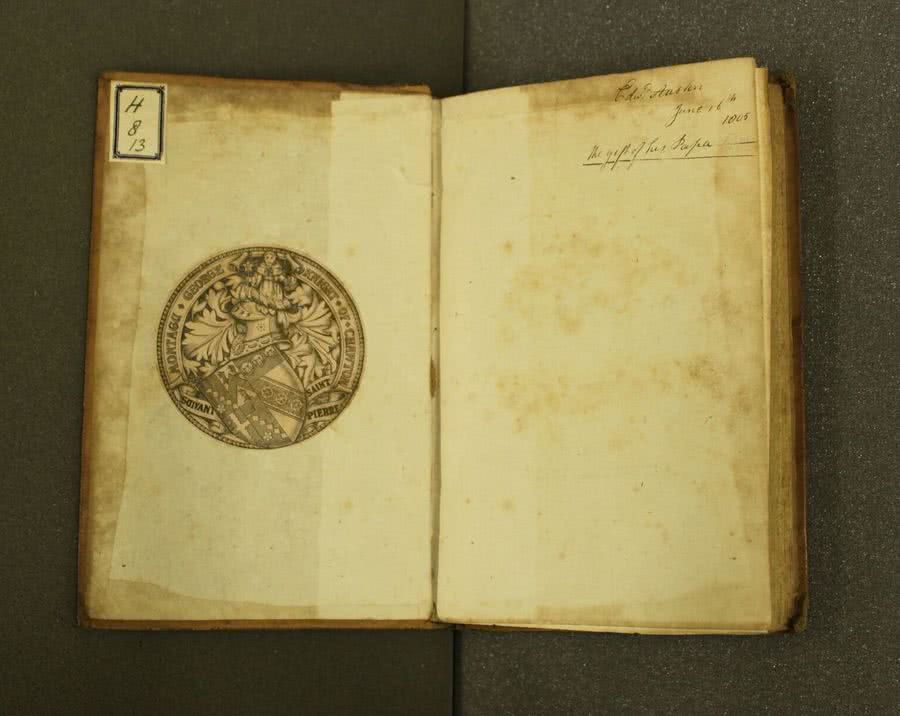 H
8
13
MONTAGU · GEORGE · KNIGHT · OF · CHAWTON
SUIVANT SAINT PIERRE
Edwd Austen
June 16th
1805
The gift of his Papa